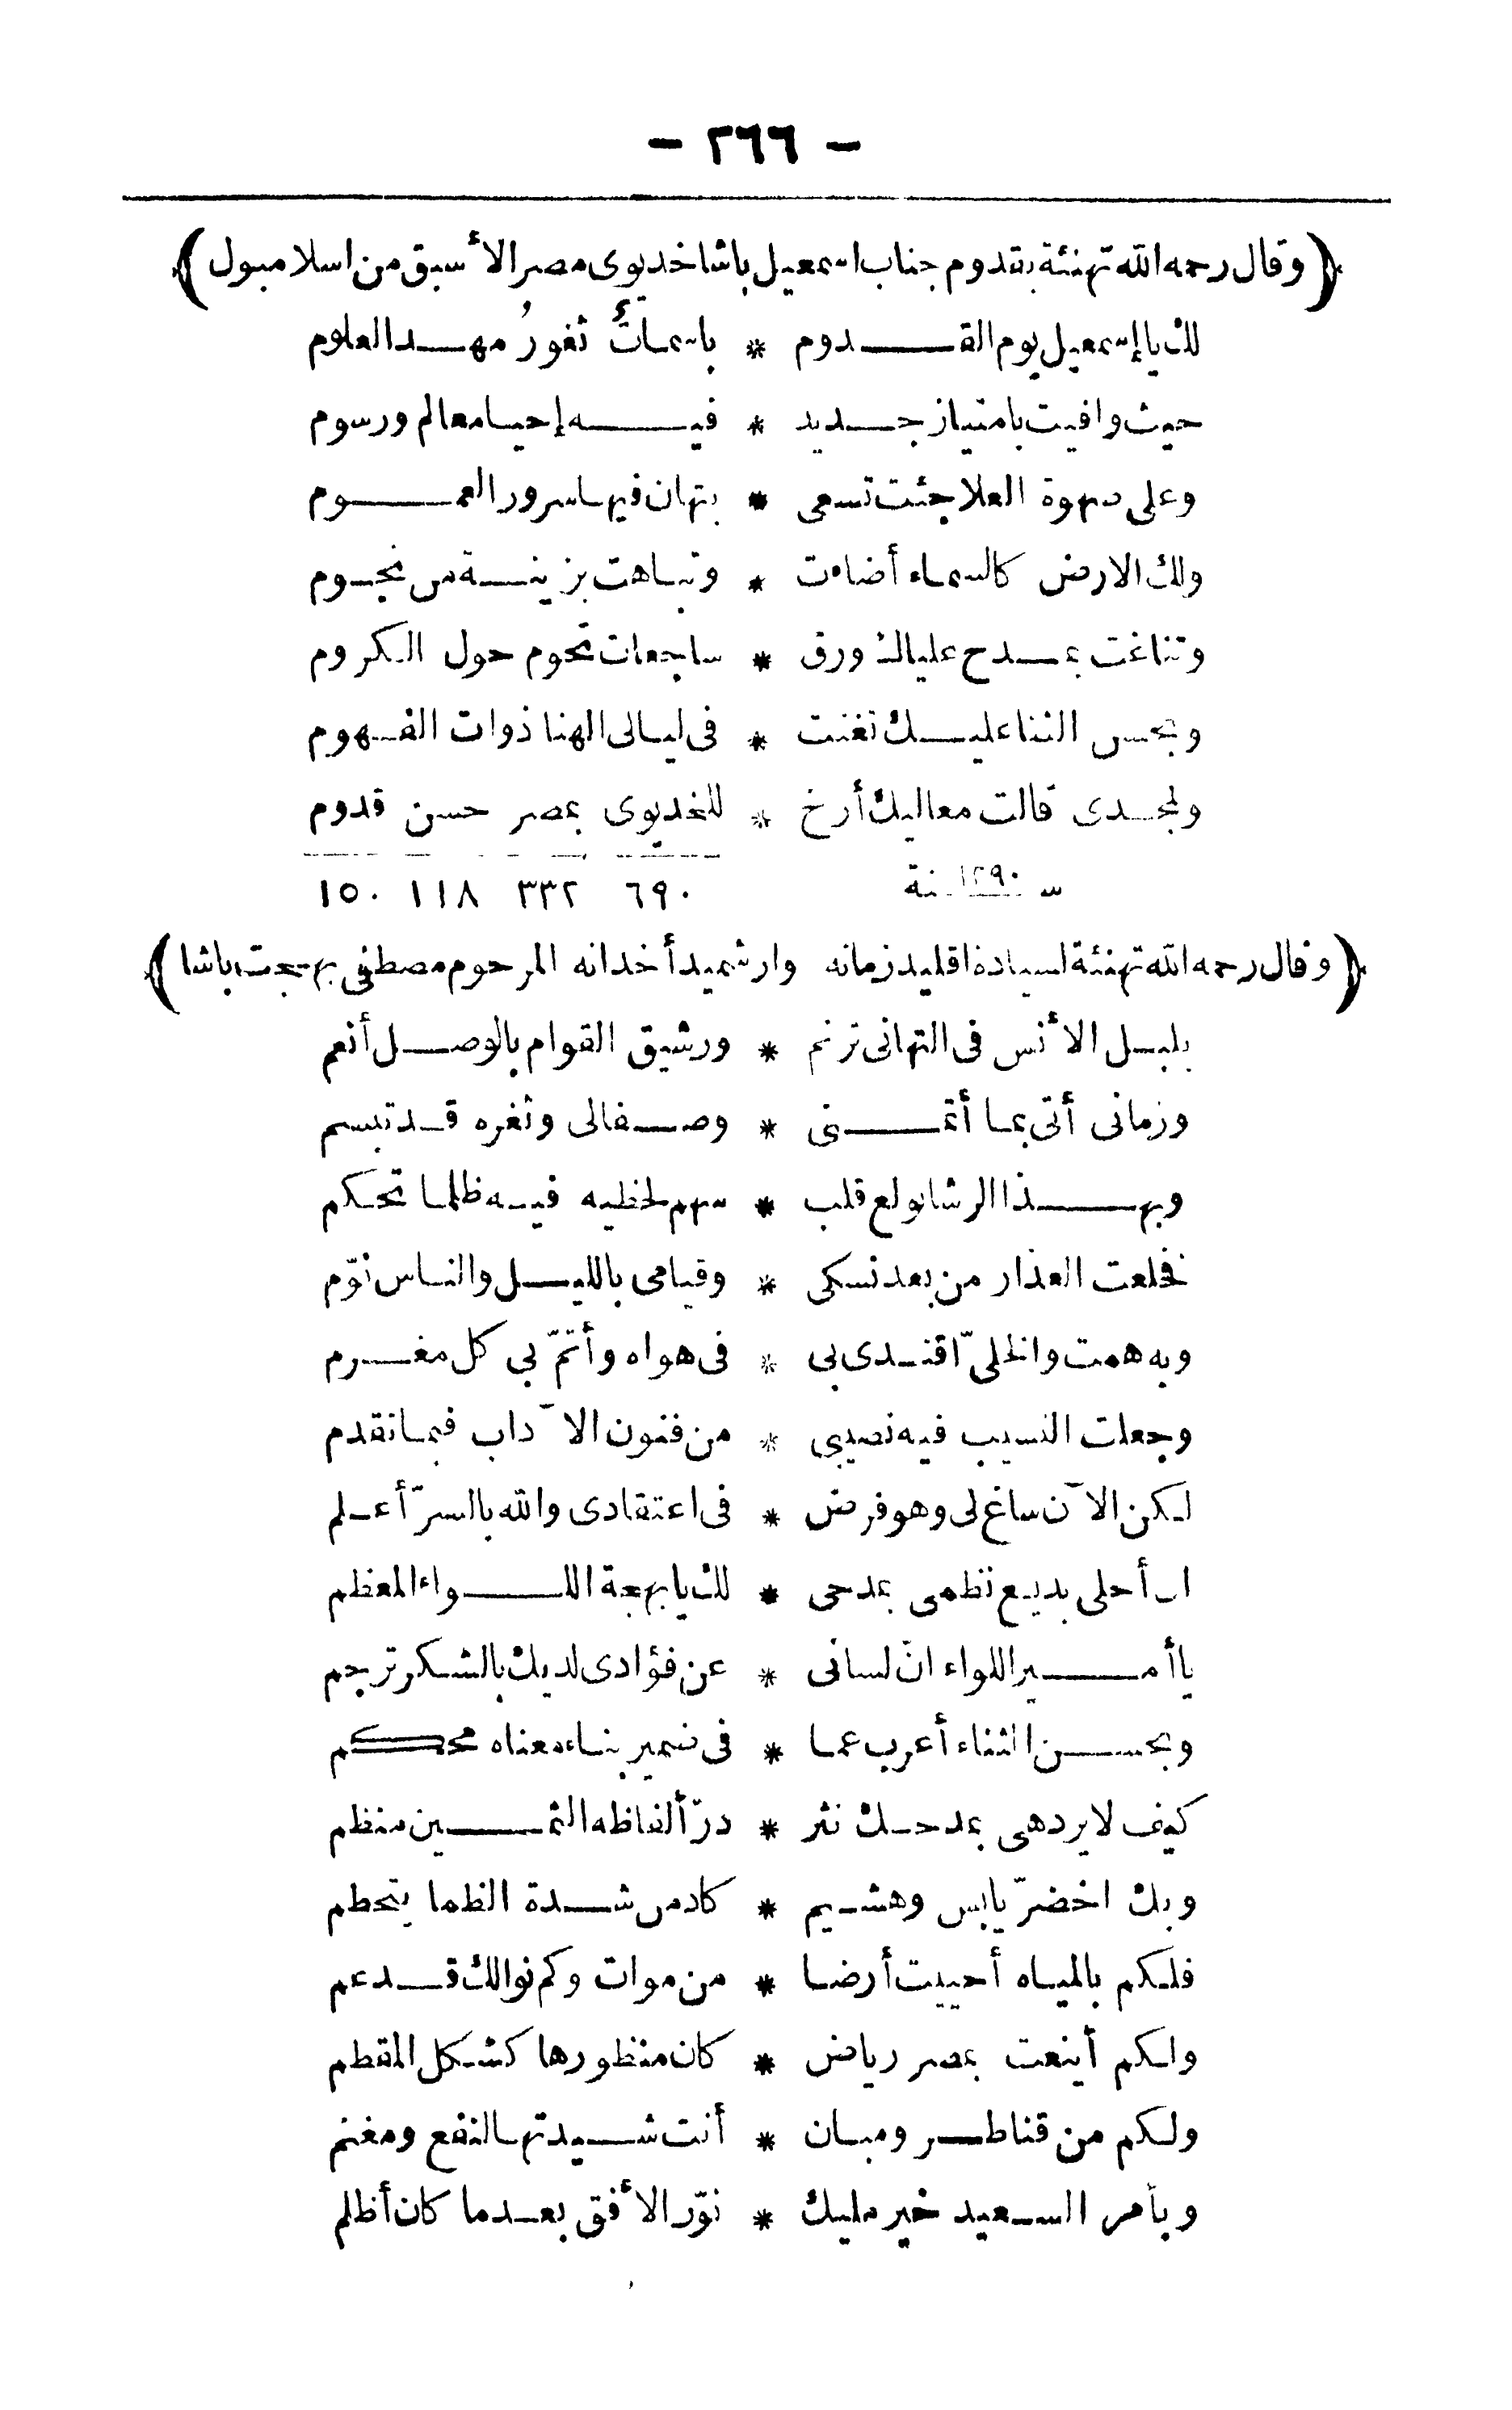 - ٢٦٦ -
﴿وقال رحمه الله تهنئة بقدوم جناب اسمعيل باشا خديوى مصر الأسبق من اسلامبول﴾
لك يا إسمعيل يوم القدوم * باسماتٌ ثغورُ مهد العلوم
حيث وافيت بامتياز جديد * فيه إحيا معالم ورسوم
وعلى صهوة العلا جئت تسعى * بتهان فيها سرور العموم
ولك الارض كالسماء أضاءت * وتباهت بزينة من نجوم
وتناغت بمدح علياك ورق * ساجعات تحوم حول الكروم
وبحسن الثنا عليك تغنت * فى ليالى الهنا ذوات الفهوم
ولمجدى قالت معاليك أرخ * للخديوى بمصر حسن قدوم
سنة ١٢٩٠ ٦٩٠ ٣٣٢ ١١٨ ١٥٠
﴿وقال رحمه الله تهنئة لسيادة اقليد زمانه وارشميد أخدانه المرحوم مصطفى بهجت باشا﴾
بلبل الأنس فى التهانى ترنم * ورشيق القوام بالوصل أنعم
وزمانى أتى بما أتمنى * وصفالى وثغره قد تبسم
وبهذا الرشا تولع قلب * سهم لحظيه فيه ظلما تحكم
فخلعت العذار من بعد نسكى * وقيامى بالليل والناس نوّم
وبه همت والخلىّ اقتدى بى * فى هواه وأتمّ بى كل مغرم
وجعلت النسيب فيه نصيبى * من فنون الآداب فيما تقدم
لكن الآن ساغ لى وهو فرض * فى اعتقادى والله بالسرّ أعلم
ان أحلى بديع نظمى بمدحى * لك يا بهجة اللواء المعظم
يا أمير اللواء انّ لسانى * عن فؤادى لديك بالشكر ترجم
وبحسن الثناء أعرب عما * فى ضمير بناء معناه محكم
كيف لا يزدهى بمدحك نثر * درّ ألفاظه الثمين منظم
وبك اخضرّ يابس وهشيم * كاد من شدة الظما يتحطم
فلكم بالمياه أحييت أرضا * من موات وكم نوالك قد عم
ولكم أينعت بمصر رياض * كان منظورها كشكل المقطم
ولكم من قناطر ومبان * أنت شيدتها لنفع ومغنم
وبأمر السعيد خير مليك * نوّر الأفق بعد ما كان أظلم